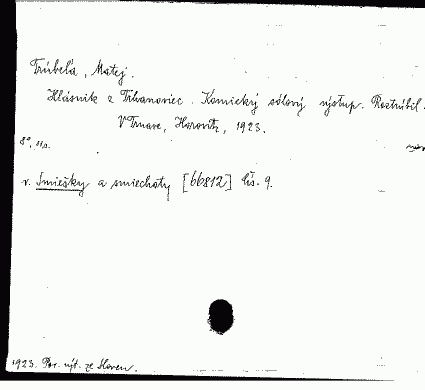 Trúbeľa, Matej.
Hlásnik z Trhanoviec. Komický sólový výstup. Roztrúbil.
V Trnave, Horovitz, 1923.
8°, 11 s.
v. Smiešky a smiechoty [66812] čís. 9.
1923. Por. výt. ze Sloven.